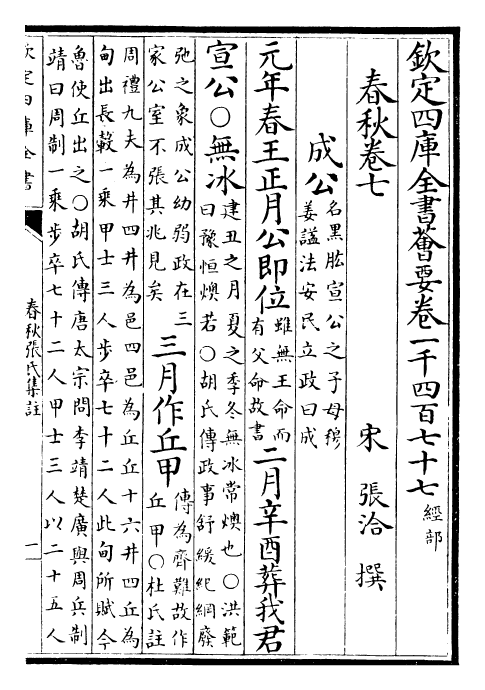 欽定四庫全書薈要卷一千四百七十七 經部
春秋卷七 宋 張洽 撰
成公 名黑肱宣公之子母穆
姜諡法安民立政曰成
元年春王正月公即位 雖無王命而
有父命故書 二月辛酉葬我君
宣公〇無冰 建丑之月夏之季冬無冰常燠也〇洪範
曰豫恒燠若〇胡氏傳政事舒緩紀綱廢
弛之象成公幼弱政在三
家公室不張其兆見矣 三月作丘甲 傳為齊難故作
丘甲〇杜氏註
周禮九夫為井四井為邑四邑為丘丘十六井四丘為
甸出長轂一乘甲士三人步卒七十二人此甸所賦今
魯使丘出之〇胡氏傳唐太宗問李靖楚廣與周兵制
靖曰周制一乘步卒七十二人甲士三人以二十五人
欽定四庫全書
春秋張氏集註
一